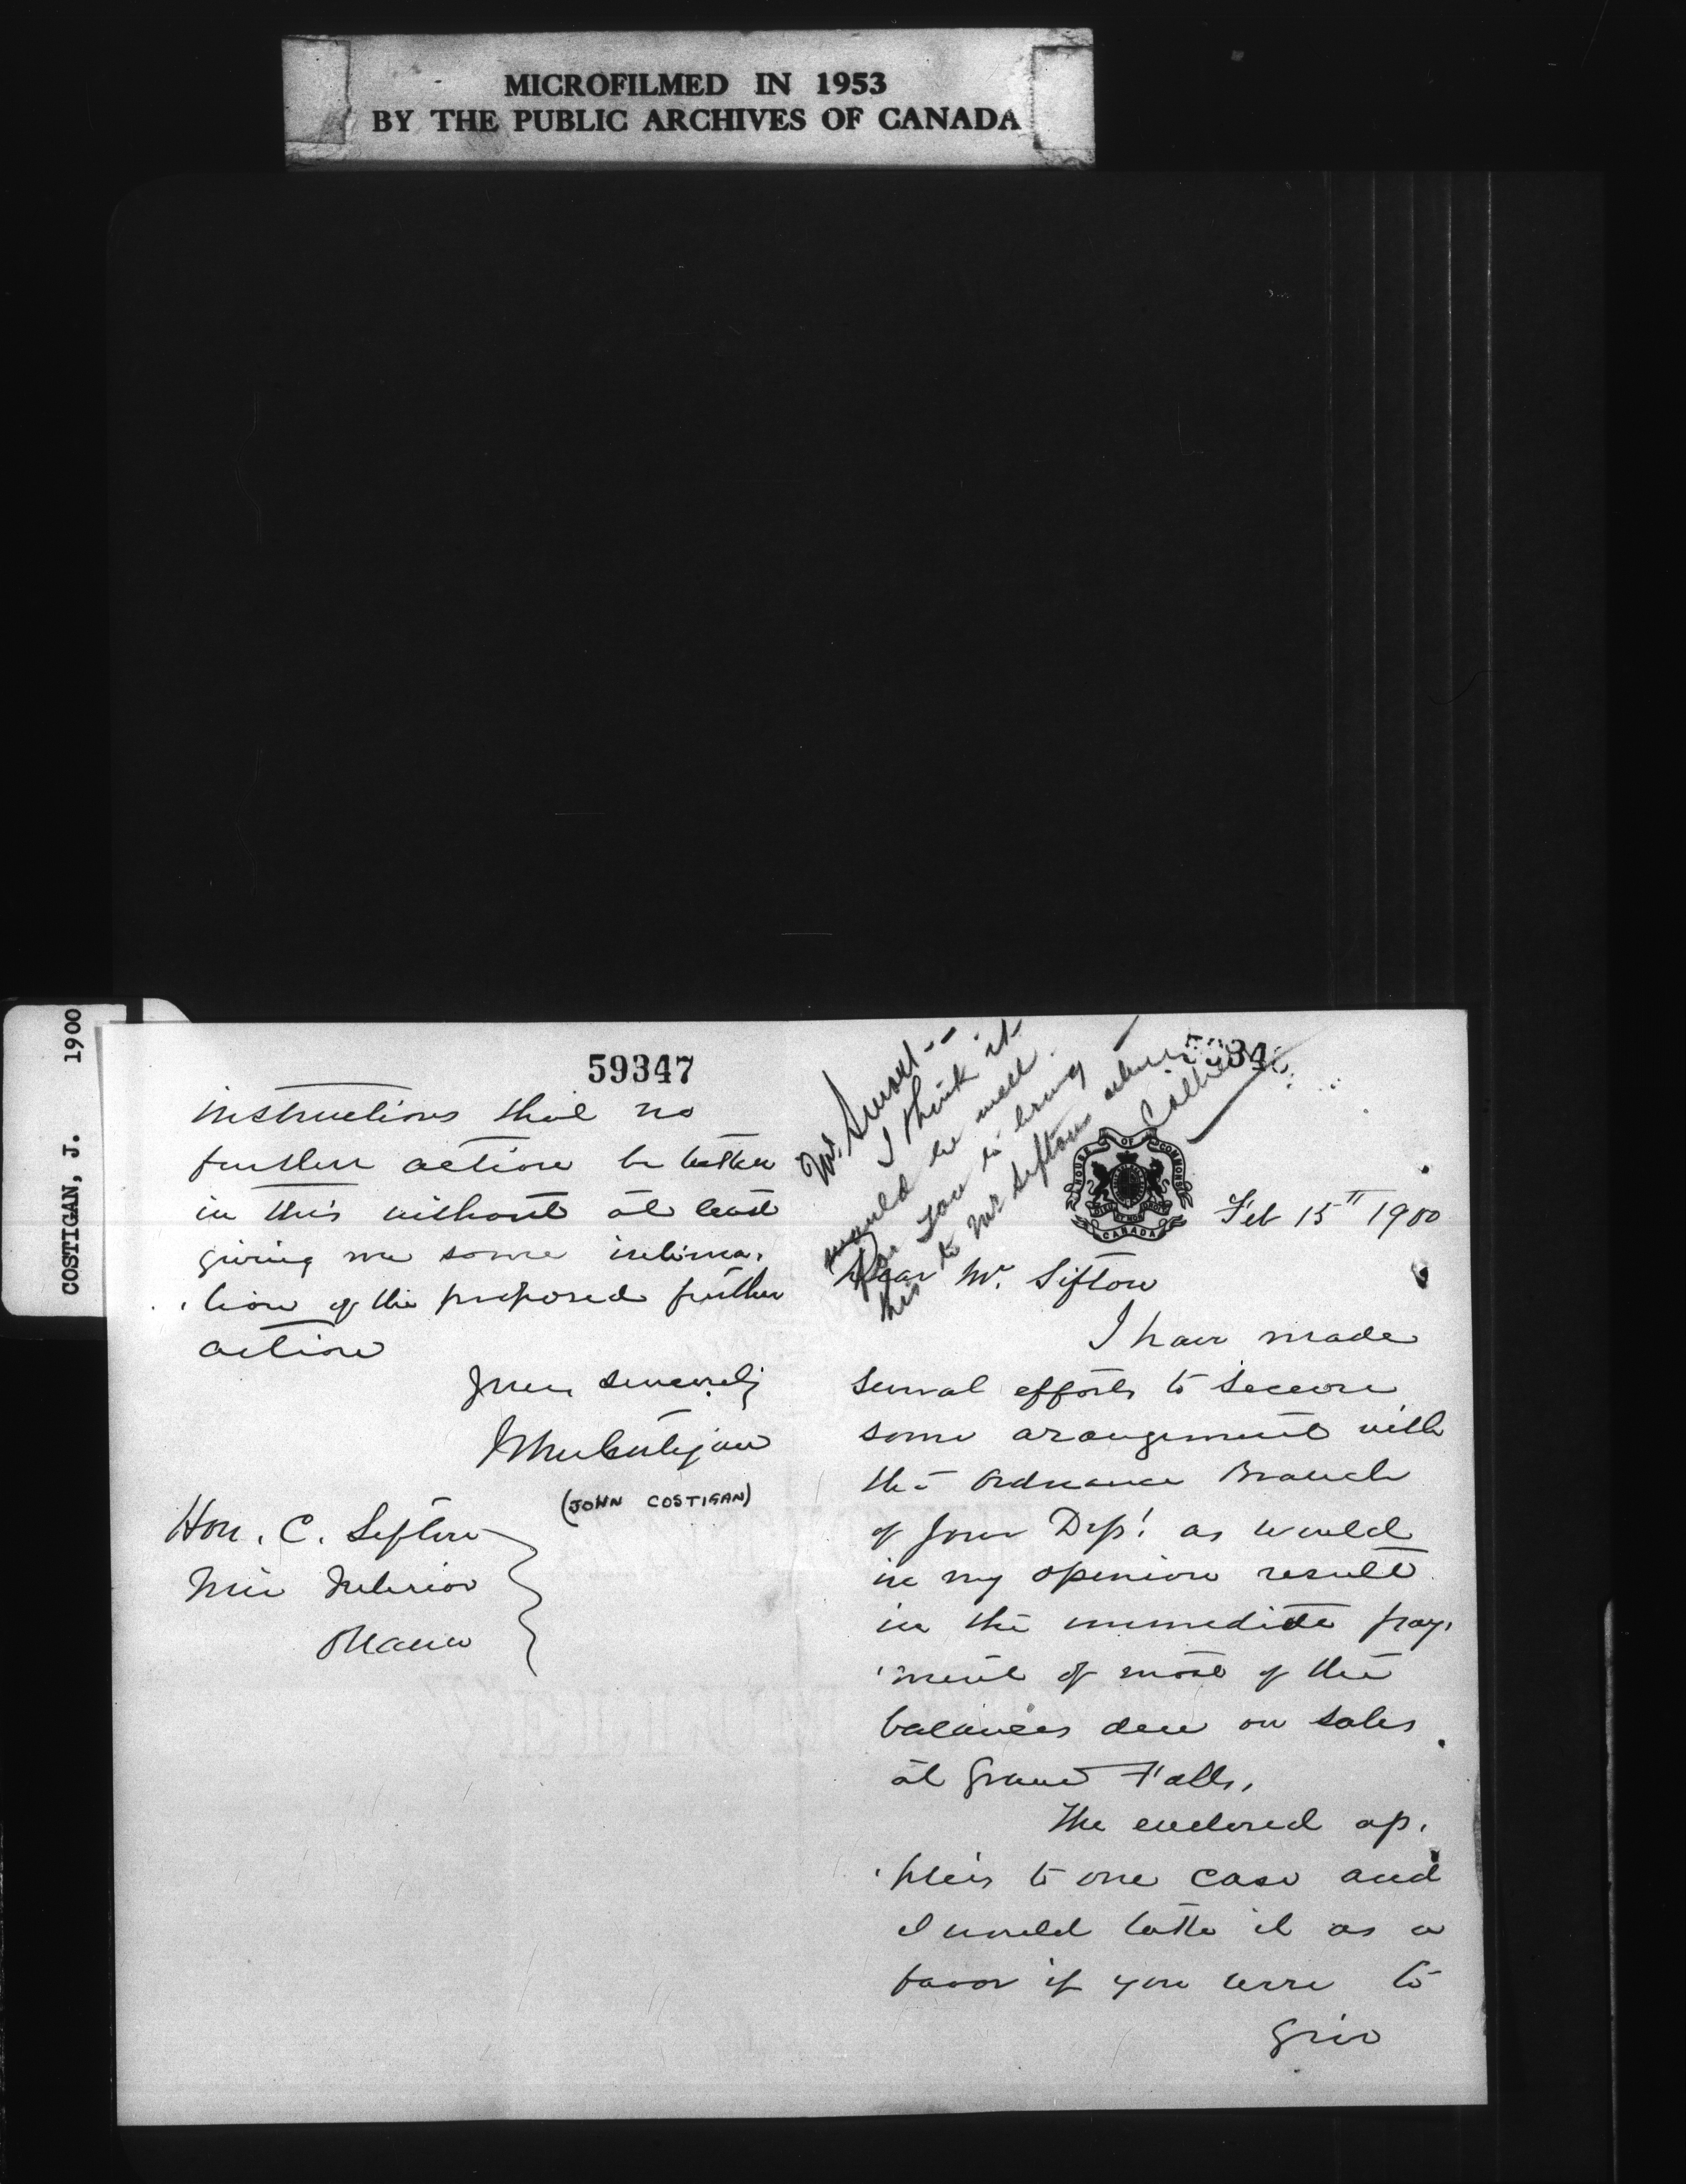 MICROFILMED IN 1953
BY THE PUBLIC ARCHIVES OF CANADA
COSTIGAN, J. 1900
59347
instructions that no
further action be taken
in this without at least
giving me some intima-
-tion of the proposed further
action
Yours sincerely
John Costigan
(JOHN COSTIGAN)
Hon. C. Sifton
Min Interior
Ottawa
Mr. Smart--
I think it
would be well
for you to bring
this to Mr Sifton when
HOUSE OF COMMONS
CANADA
Feb 15" 1900
Dear Mr. Sifton
I have made
several efforts to secure
some arangement with
the Ordnance Branch
of your Dept. as would
in my opinion result
in the immediate pay-
-ment of most of the
balances due on sales
at Grand Falls.
The enclosed ap-
-plies to one case and
I would take it as a
favor if you were to
give